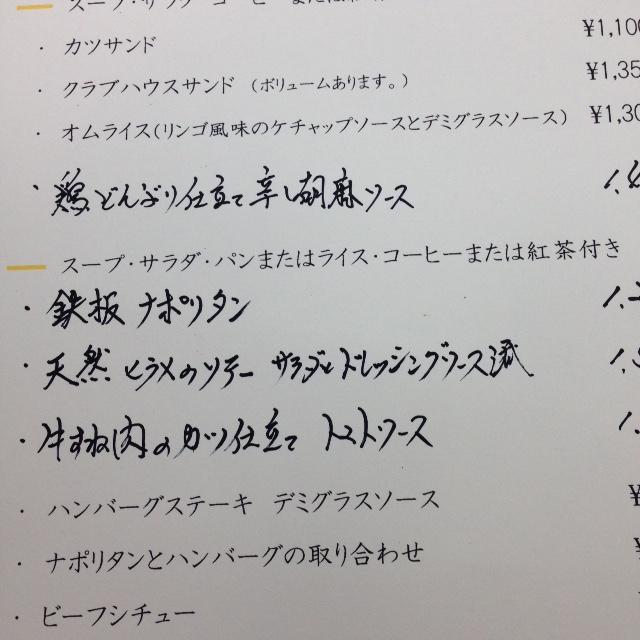 スープ・サラダ・コーヒーまたは紅
・ カツサンド ¥1,100
・ クラブハウスサンド (ボリュームあります。) ¥1,35
・ オムライス(リンゴ風味のケチャップソースとデミグラスソース) ¥1,30
・ 鶏どんぶり仕立て辛し胡麻ソース 1,
スープ・サラダ・パンまたはライス・コーヒーまたは紅茶付き
・ 鉄板 ナポリタン 1,
・ 天然 ヒラメのソテー サラダとドレッシングソース 1,
・ 牛すね肉のカツ仕立て トマトソース 1,
・ ハンバーグステーキ デミグラスソース ¥
・ ナポリタンとハンバーグの取り合わせ ¥
・ ビーフシチュー